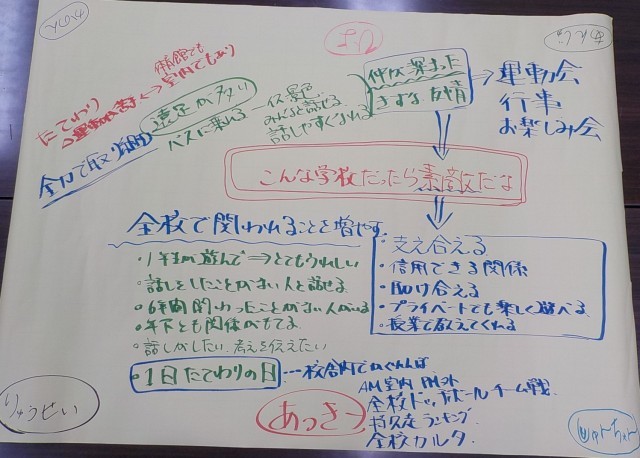 ひよ
あんじゅ
体育館でも
たてわり
室内でもあり
全力で取り組む
遠足が多い
バスに乗れる
みんなと話せる
話しやすくなれる
仲が深まった
きずな 友情
運動会
行事
お楽しみ会
こんな学校だったら素敵だな
全校で関われることを増やす
・1年生が遊んで⇒とてもうれしい
・話しをしたことがない人と話せる
・6年間関わったことがない人がいる
・年下とも関係がもてる
・話しがしたい、考えを伝えたい
・1日たてわりの日
・支え合える
・信用できる関係
・助け合える
・プライベートでも楽しく遊べる
・授業で教えてくれる
校舎内でかくれんぼ
AM室内 PM外
全校ドッヂボールチーム戦
持久走ランキング
全校カルタ
りゅうせい
あっきー
ゆーちゃん